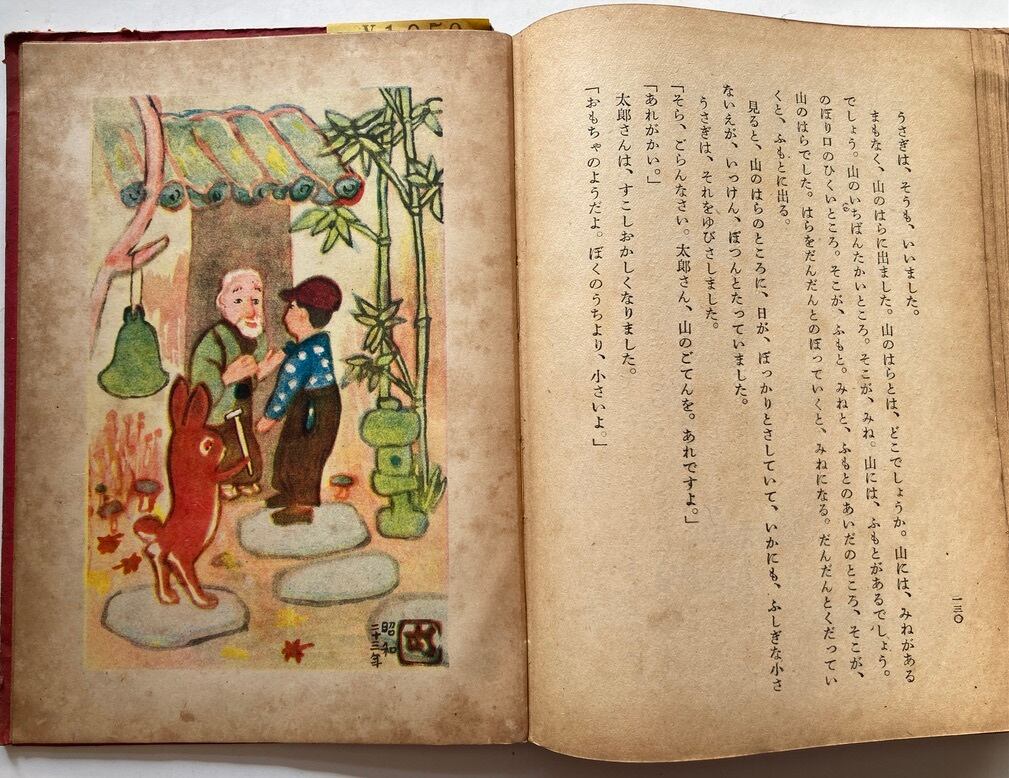 一三〇
うさぎは、そうも、いいました。
まもなく、山のはらに出ました。山のはらとは、どこでしょうか。山には、みねがある
でしょう。山のいちばんたかいところ。そこが、みね。山には、ふもとがあるでしょう。
のぼり口のひくいところ。そこが、ふもと。みねと、ふもとのあいだのところ、そこが、
山のはらでした。はらをだんだんとのぼっていくと、みねになる。だんだんとくだってい
くと、ふもとに出る。
見ると、山のはらのところに、日が、ぽっかりとさしていて、いかにも、ふしぎな小さ
ないえが、いっけん、ぽつんとたっていました。
うさぎは、それをゆびさしました。
「そら、ごらんなさい。太郎さん、山のごてんを。あれですよ。」
「あれがかい。」
太郎さんは、すこしおかしくなりました。
「おもちゃのようだよ。ぼくのうちより、小さいよ。」
昭和
二十三年